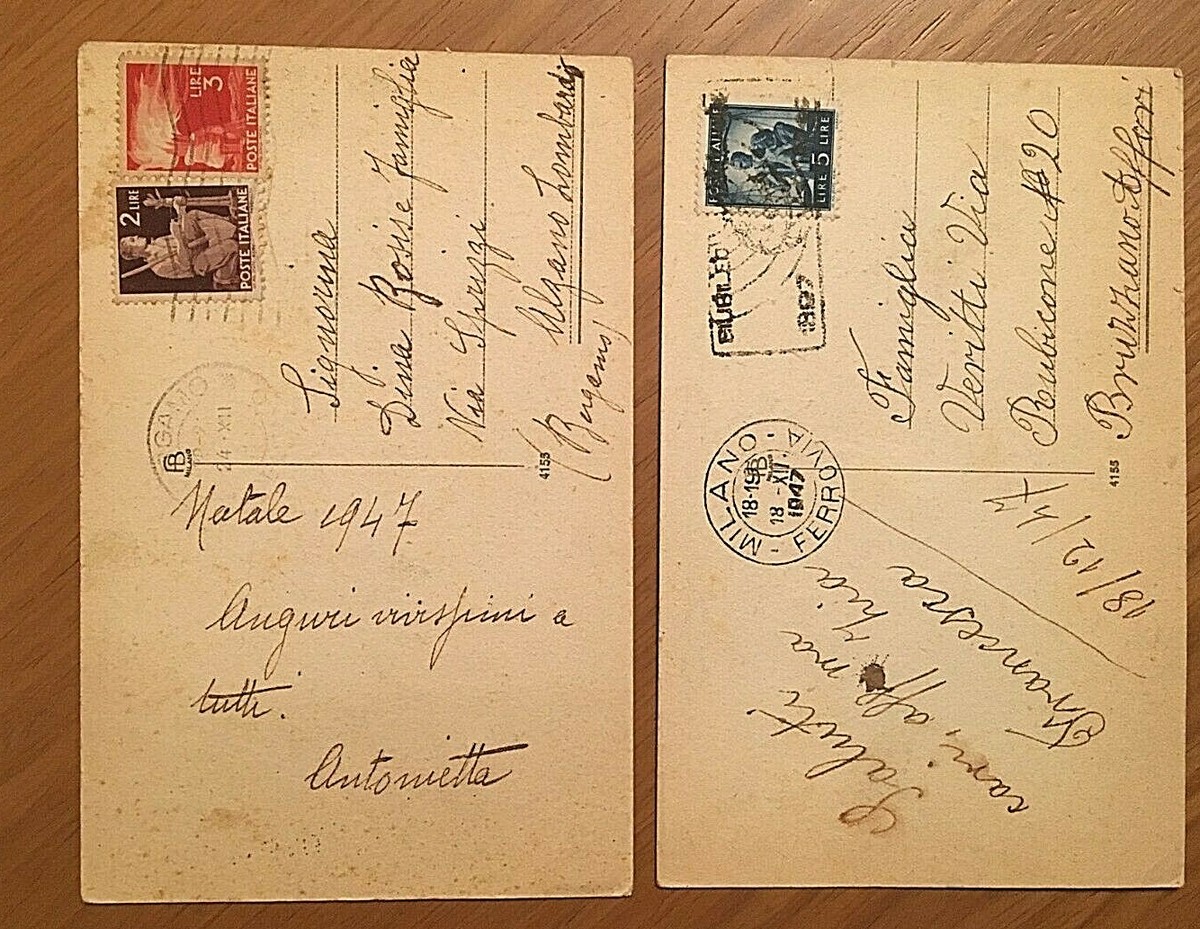 LIRE 3
POSTE ITALIANE
2 LIRE
POSTE ITALIANE
GAMO
24 · XII
Signorina
Dina Bosis e famiglia
Via Spuzzi
Alzano Lombardo
(Bergamo)
B
MILANO
4155
Natale 1947
Auguri vivissimi a
tutti.
Antonietta
LIRE 5 LIRE
GIUBILEO
1897
Famiglia
Veritti Via
Rubicone N 20
Bruzzano Affori
MILANO - FERROVIA -
18-19
18 - XII
1947
B
4155
18/12/47
Saluti
cari, aff ma Zia
Francesca